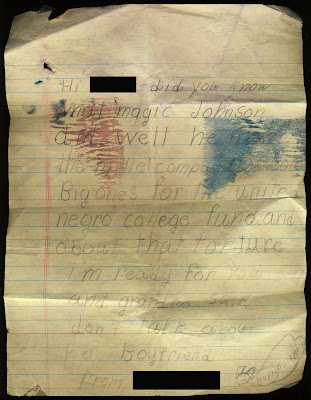 Hi did you know
what magic Johnson
did well he
the
Big ones for the united
negro college fund. and
about that torture
i'm ready for you
and grandma said
don't talk about
her Boyfriend
from